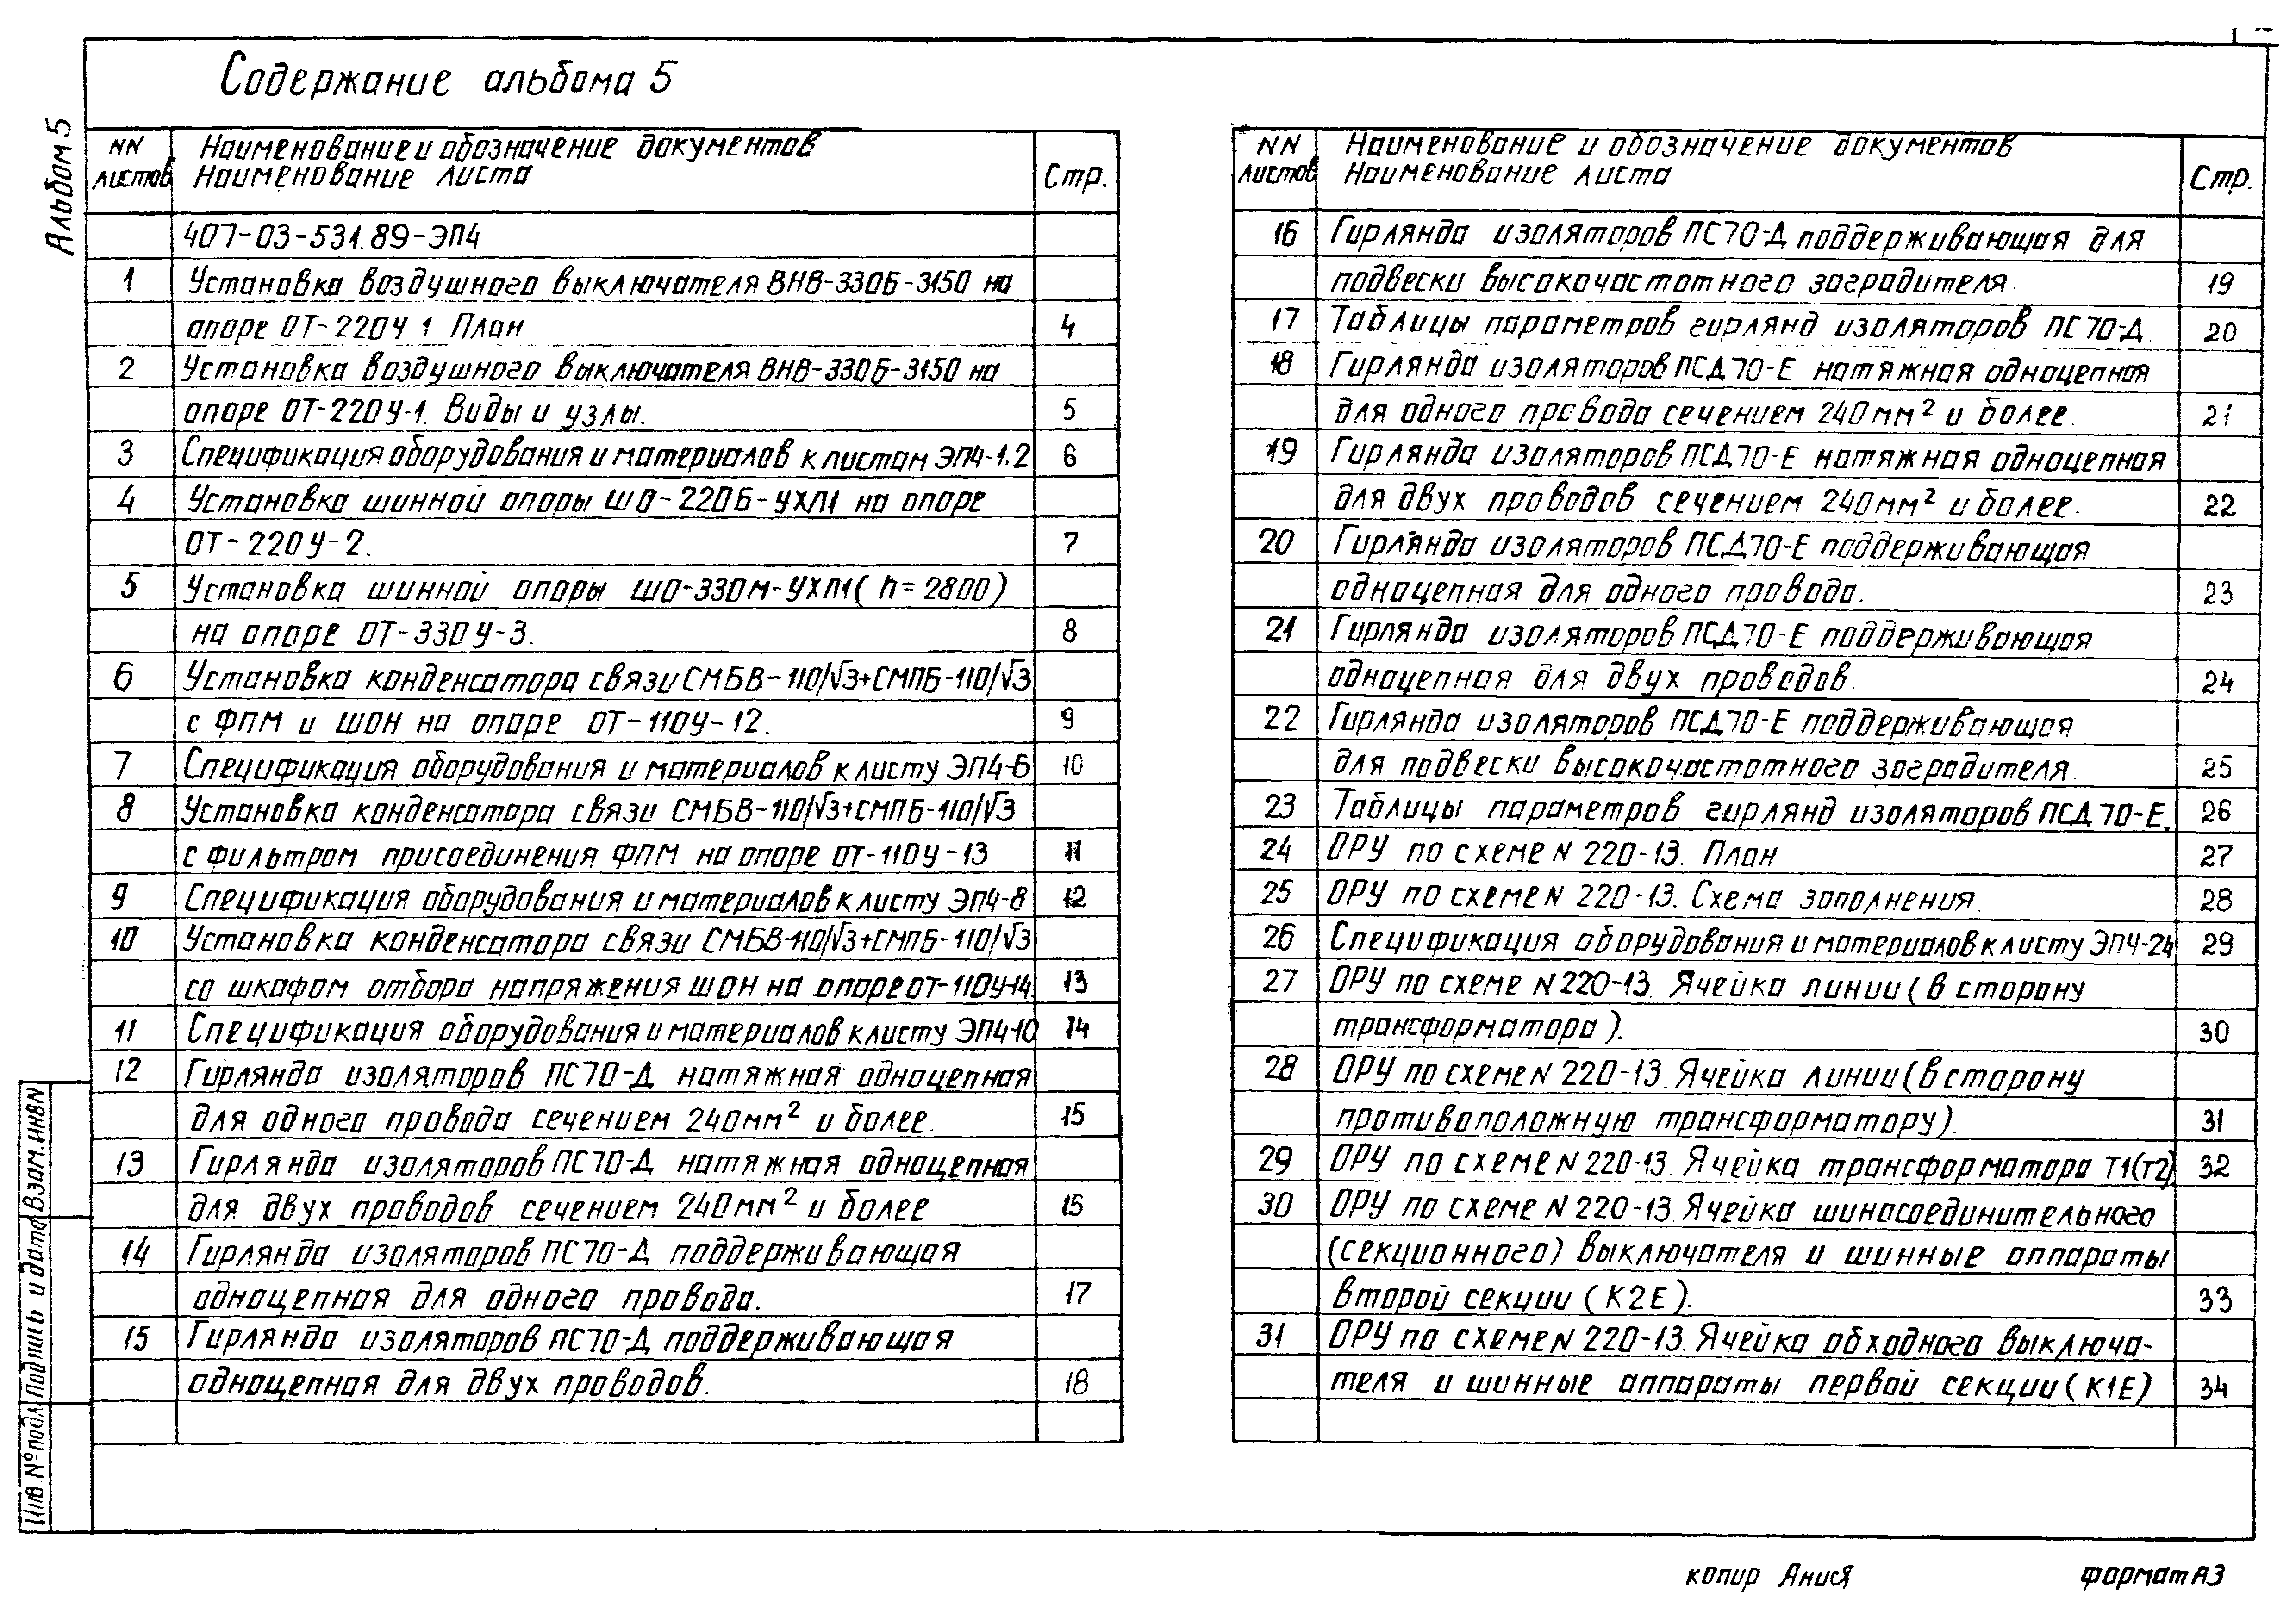 Содержание альбома 5
Альбом 5
NN листов
Наименование и обозначение документов
Наименование листа
Стр.
407-03-531.89-ЭП4
1 Установка воздушного выключателя ВНВ-330Б-3150 на
опоре ОТ-220У-1 План 4
2 Установка воздушного выключателя ВНВ-330Б-3150 на
опоре ОТ-220У-1. Виды и узлы. 5
3 Спецификация оборудования и материалов к листам ЭП4-1.2 6
4 Установка шинной опоры ШО-220Б-УХЛ1 на опоре
ОТ-220У-2. 7
5 Установка шинной опоры ШО-330М-УХЛ1 (h=2800)
на опоре ОТ-330У-3. 8
6 Установка конденсатора связи СМБВ-110/√3+СМПБ-110/√3
с ФПМ и ШОН на опоре ОТ-110У-12. 9
7 Спецификация оборудования и материалов к листу ЭП4-6 10
8 Установка конденсатора связи СМБВ-110/√3+СМПБ-110/√3
с фильтром присоединения ФПМ на опоре ОТ-110У-13 11
9 Спецификация оборудования и материалов к листу ЭП4-8 12
10 Установка конденсатора связи СМБВ-110/√3+СМПБ-110/√3
со шкафом отбора напряжения ШОН на опоре ОТ-110У-14 13
11 Спецификация оборудования и материалов к листу ЭП4-10 14
12 Гирлянда изоляторов ПС70-Д натяжная одноцепная
для одного провода сечением 240мм² и более. 15
13 Гирлянда изоляторов ПС70-Д натяжная одноцепная
для двух проводов сечением 240мм² и более 16
14 Гирлянда изоляторов ПС70-Д поддерживающая
одноцепная для одного провода. 17
15 Гирлянда изоляторов ПС70-Д поддерживающая
одноцепная для двух проводов. 18
NN листов
Наименование и обозначение документов
Наименование листа
Стр.
16 Гирлянда изоляторов ПС70-Д поддерживающая для
подвески высокочастотного заградителя. 19
17 Таблицы параметров гирлянд изоляторов ПС70-Д 20
18 Гирлянда изоляторов ПСД70-Е натяжная одноцепная
для одного провода сечением 240мм² и более. 21
19 Гирлянда изоляторов ПСД70-Е натяжная одноцепная
для двух проводов сечением 240мм² и более. 22
20 Гирлянда изоляторов ПСД70-Е поддерживающая
одноцепная для одного провода. 23
21 Гирлянда изоляторов ПСД70-Е поддерживающая
одноцепная для двух проводов. 24
22 Гирлянда изоляторов ПСД70-Е поддерживающая
для подвески высокочастотного заградителя. 25
23 Таблицы параметров гирлянд изоляторов ПСД70-Е. 26
24 ОРУ по схеме N 220-13. План. 27
25 ОРУ по схеме N 220-13. Схема заполнения. 28
26 Спецификация оборудования и материалов к листу ЭП4-24 29
27 ОРУ по схеме N 220-13. Ячейка линии (в сторону
трансформатора). 30
28 ОРУ по схеме N 220-13. Ячейка линии (в сторону
противоположную трансформатору). 31
29 ОРУ по схеме N 220-13. Ячейка трансформатора Т1(Т2) 32
30 ОРУ по схеме N 220-13. Ячейка шиносоединительного
(секционного) выключателя и шинные аппараты
второй секции (К2Е). 33
31 ОРУ по схеме N 220-13. Ячейка обходного выключа-
теля и шинные аппараты первой секции (К1Е) 34
Взам. инв N
Подпись и дата
Инв. N° подл
копир Анися
формат А3